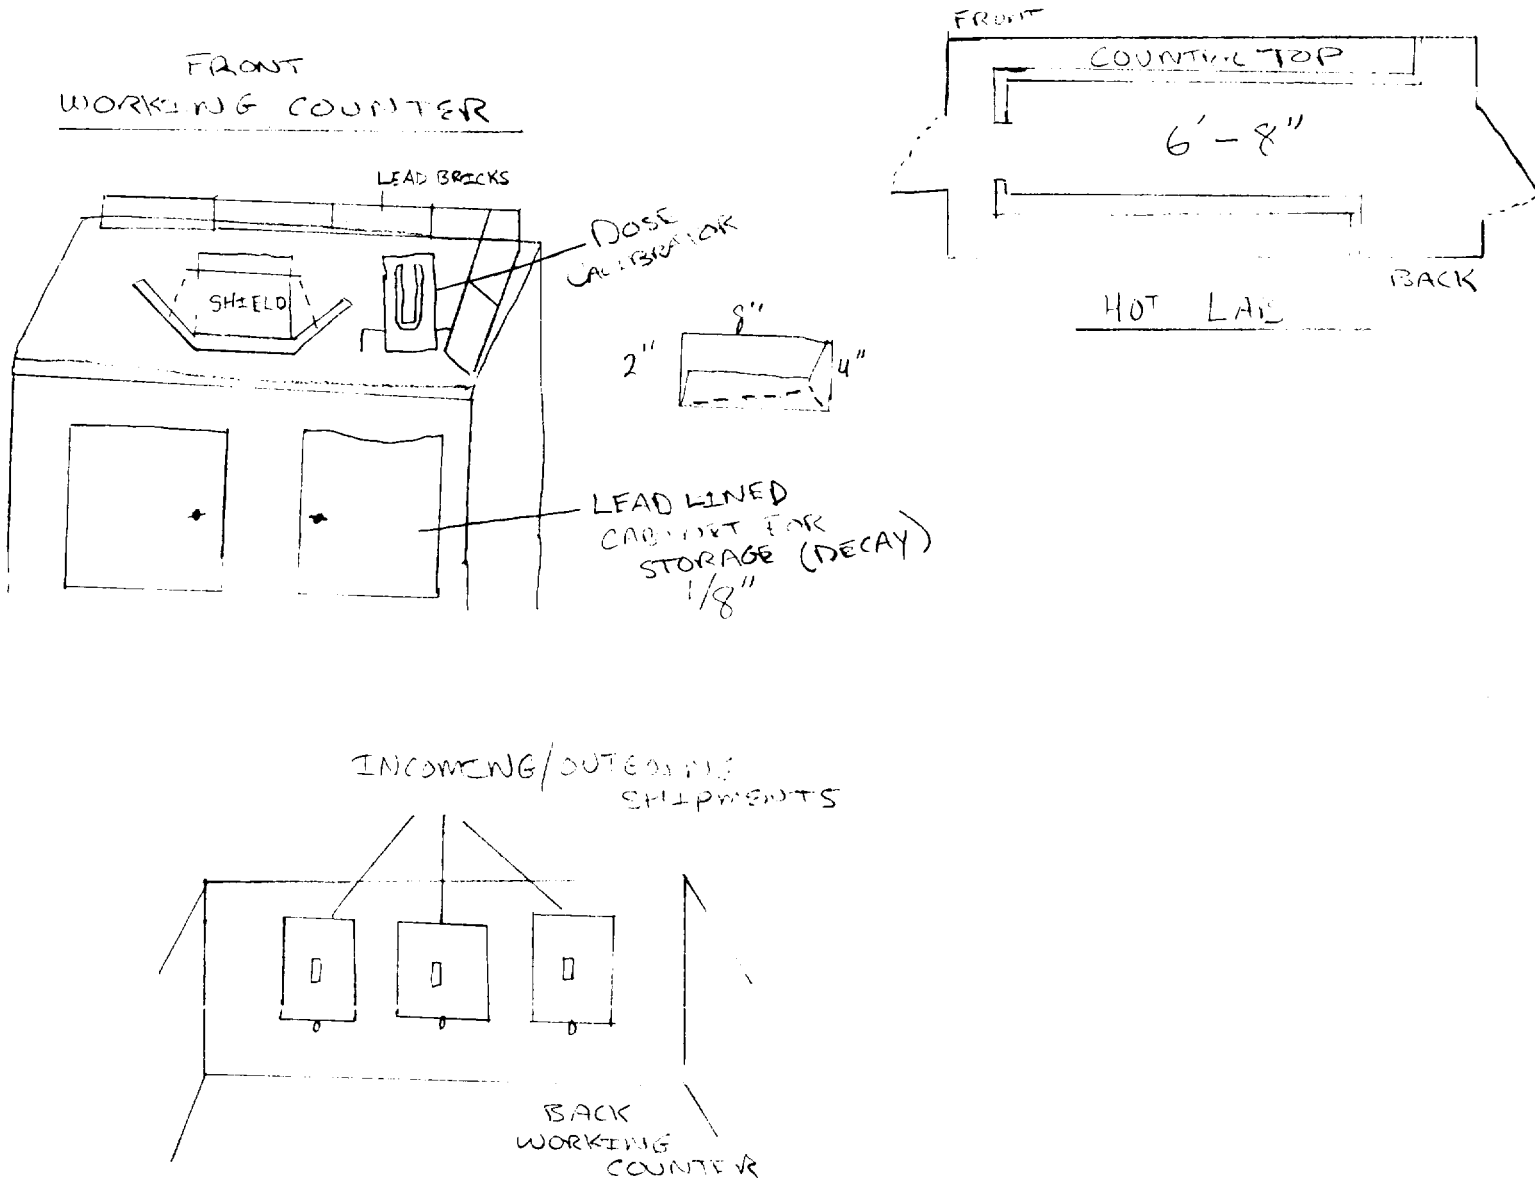 FRONT
WORKING COUNTER
LEAD BRICKS
DOSE
CALIBRATOR
SHIELD
8"
2"
4"
LEAD LINED
CABINET FOR
STORAGE (DECAY)
1/8"
FRONT
COUNTER TOP
6'-8"
BACK
HOT LAB
INCOMING/OUTGOING
SHIPMENTS
BACK
WORKING
COUNTER